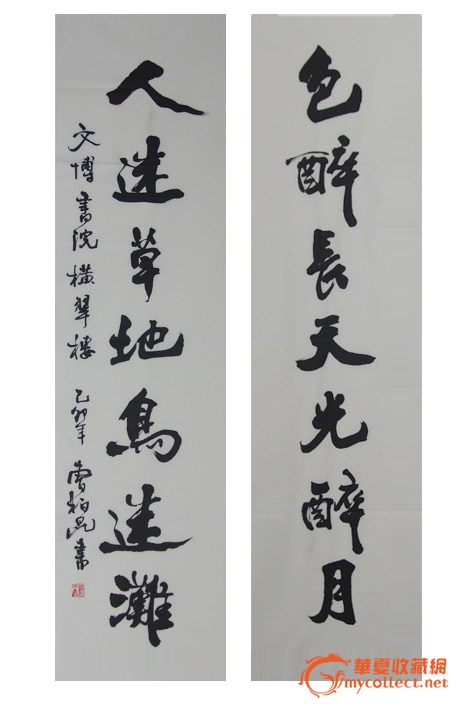 色醉長天光醉月
人迷草地鳥迷灘
文博書院橫翠樓
己卯年曾柏昆書
華夏收藏網
mycollect.net